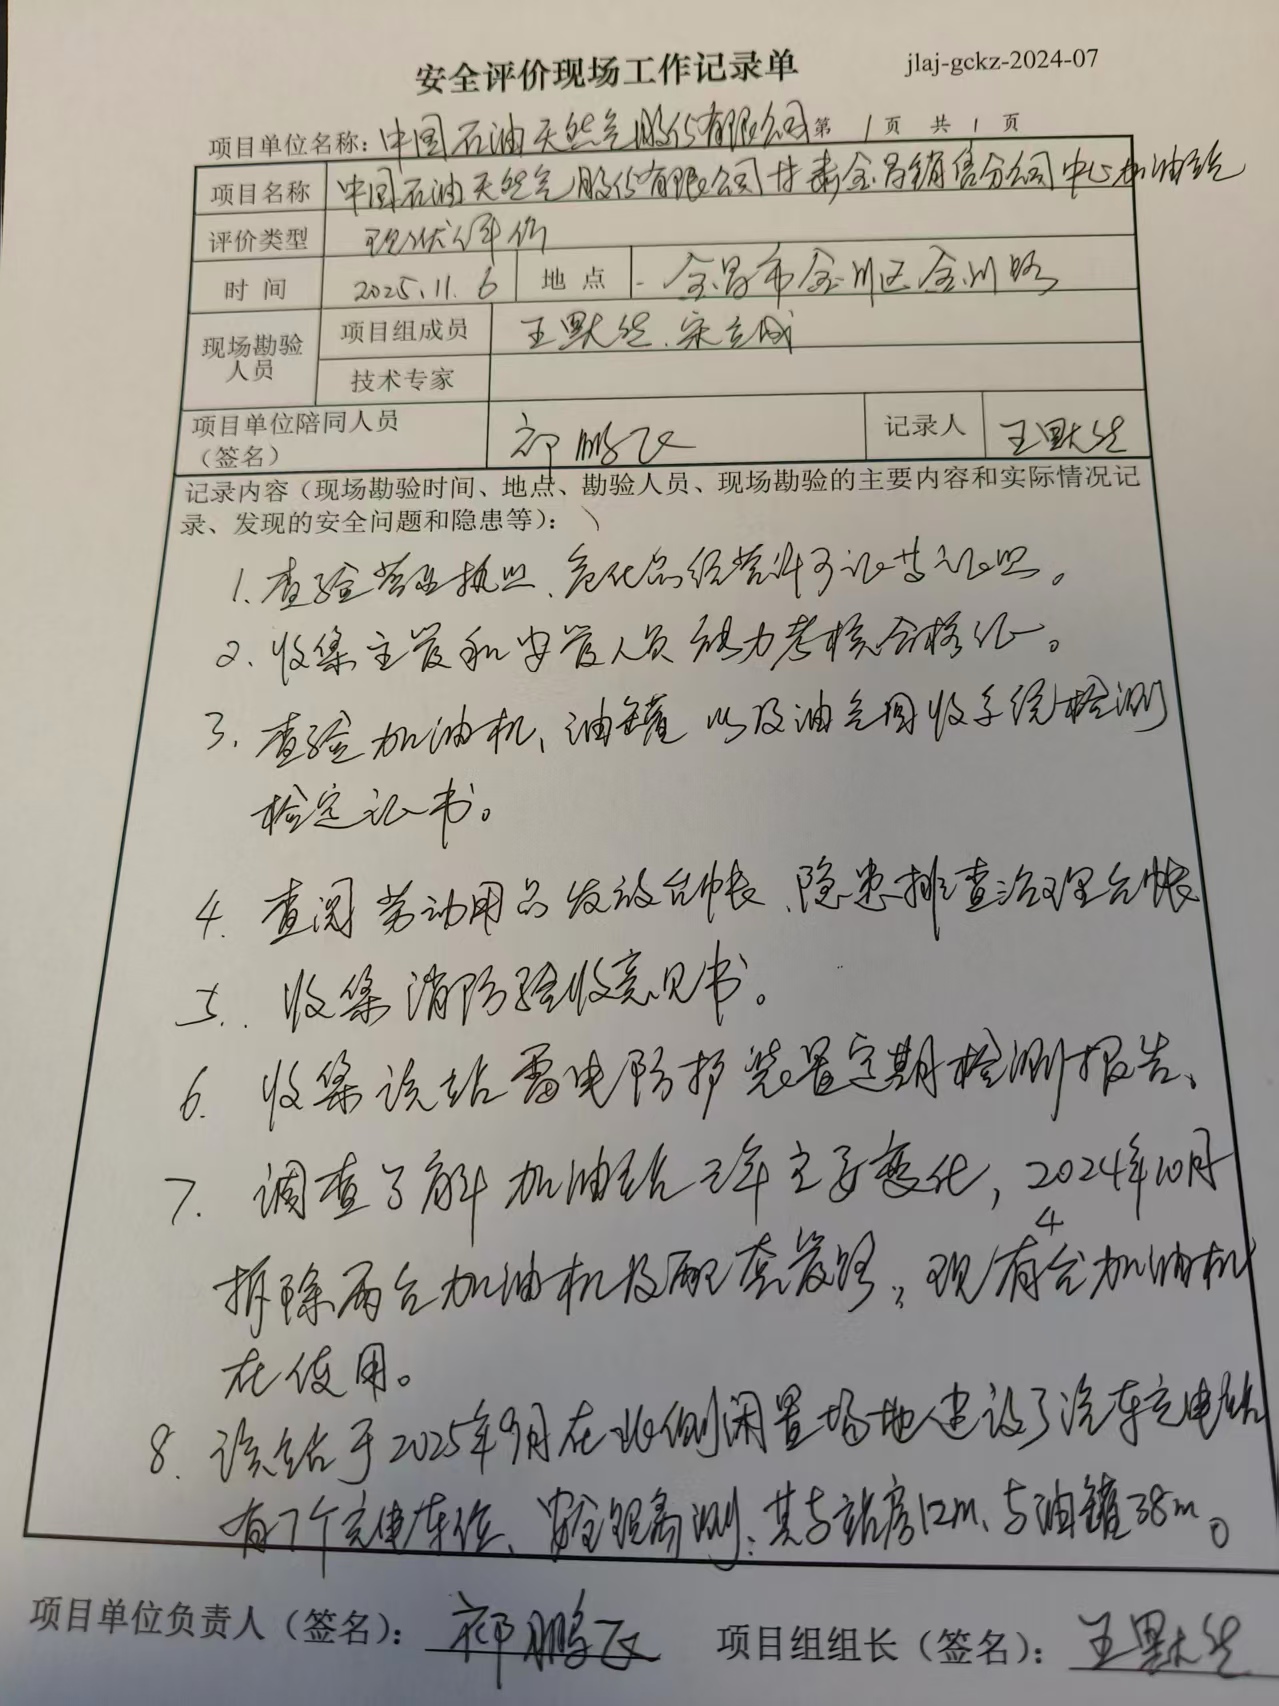 安全评价现场工作记录单 jlaj-gckz-2024-07
项目单位名称：中国石油天然气股份有限公司 第 1 页 共 1 页
项目名称 中国石油天然气股份有限公司甘肃金昌销售分公司中心加油站
评价类型 现状评价
时 间 2025.11.6 地 点 金昌市金川区金川路
现场勘验人员 项目组成员 王默然、宋立成
技术专家
项目单位陪同人员（签名） 祁鹏飞 记录人 王默然
记录内容（现场勘验时间、地点、勘验人员、现场勘验的主要内容和实际情况记
录、发现的安全问题和隐患等）：
1. 查验营业执照、危化品经营许可证等证照。
2. 收集主管和安管人员能力考核合格证。
3. 查验加油机、油罐以及油气回收系统检测
检定证书。
4. 查阅劳动用品发放台帐、隐患排查治理台帐
5. 收集消防验收意见书。
6. 收集该站雷电防护装置定期检测报告、
7. 调查了解加油站三年主要变化，2024年10月
拆除两台加油机及配套管路，现有4台加油机
在使用。
8. 该站于2025年9月在北侧闲置场地建设了汽车充电站
有7个充电车位、安全距离测：其与站房12m、与油罐38m。
项目单位负责人（签名）：祁鹏飞 项目组组长（签名）：王默然